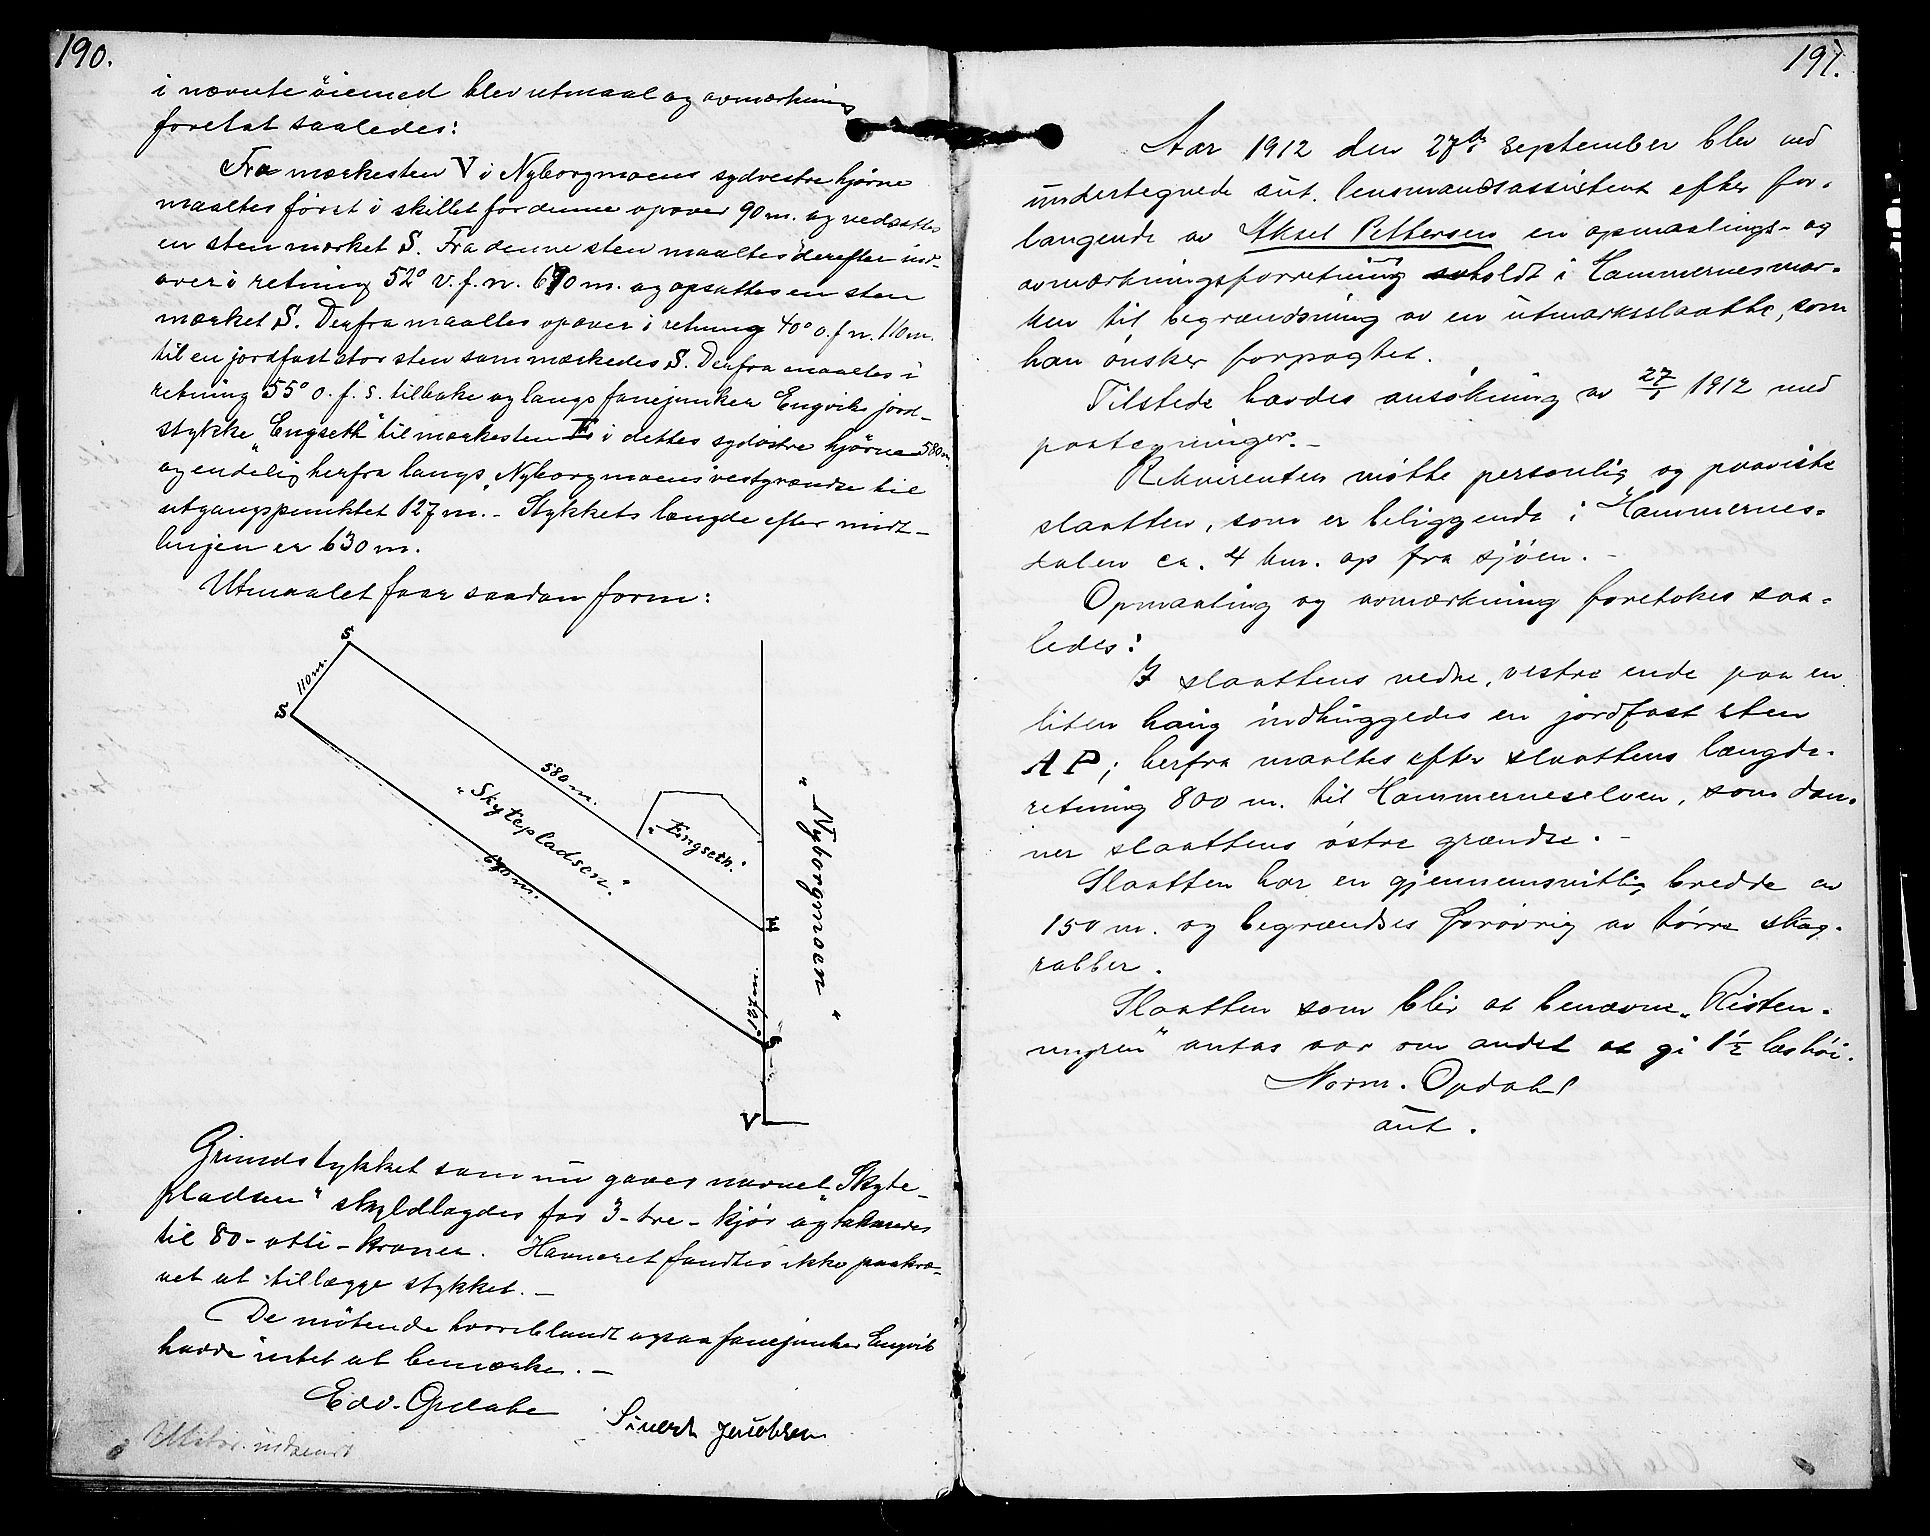 190.
i nævnte öiemed blev utmaal og avmærkning
foretat saaledes:
Fra merkesten V i Nyborgmoens sydvestre hjørne
maaltes først i skillet for denne opover 90 m. og nedsattes
en sten merket S. Fra denne sten maaltes derefter ind-
over i retning 52° v. f. n. 690 m. og opsattes en sten
merket S. Derfra maaltes opover i retning 40° o. f n. 110 m.
til en jordfast stor sten som merkedes S. Derfra maaltes i
retning 55° o. f. s. tilbake og langs fanejunker Engviks jord-
stykke „Engseth" til merkesten II i dettes sydöstre hjörne 580 m.
og endelig herfra langs „Nyborgmoens vestgrændse til
utgangspunktet 127 m. - Stykkets længde efter midt-
linjen er 630 m.
Utmaalet faar saadan form:
S
110 m.
S
580 m.
„Skytepladsen."
690 m.
„Engseth."
„Nyborgmoen"
127 m.
S
V
Grundstykket som nu gaves navnet „Skyte-
pladsen" skyldlagdes for 3 - tre - kjør og takseredes
til 80 - otti - kroner. Havneret fandtes ikke paakræ-
vet at tillægge stykket. -
De mötende hvoriblandt ogsaa fanejunker Engvik
hadde intet at bemerke. -
Edv. Opdahl
Sivert Jacobsen
Utskr. indsendt
191.
Aar 1912 den 27de september blev ved
undertegnede aut. lensmandsassistent efter for-
langende av Aksel Pettersen en opmaalings- og
avmærkningsforretning avholdt i Hammernesmar-
ken til begrændsning av en utmarksslaatte, som
han önsker forpagtet.
Tilstede havdes ansökning av 27/ 1912 med
paategninger. -
Rekvirenten mötte personlig og paaviste
slaatten, som er beliggende i Hammernes-
dalen ca. 4 km. op fra sjöen. -
Opmaaling og avmærkning foretokes saa-
ledes:
I slaattens nedre, vestre ende paa en
liten haug indhuggedes en jordfast sten
AP; herfra maaltes efter slaattens længde-
retning 800 m. til Hammerneselven, som dan-
ner slaattens östre grændse. -
Slaatten har en gjennemsnitlig bredde av
150 m. og begrændses forövrig av törre skog-
rabber.
Slaatten som blir at benævne „Risten-
myren" antas aar om andet at gi 1½ læs höi.
Norm. Opdahl
aut.